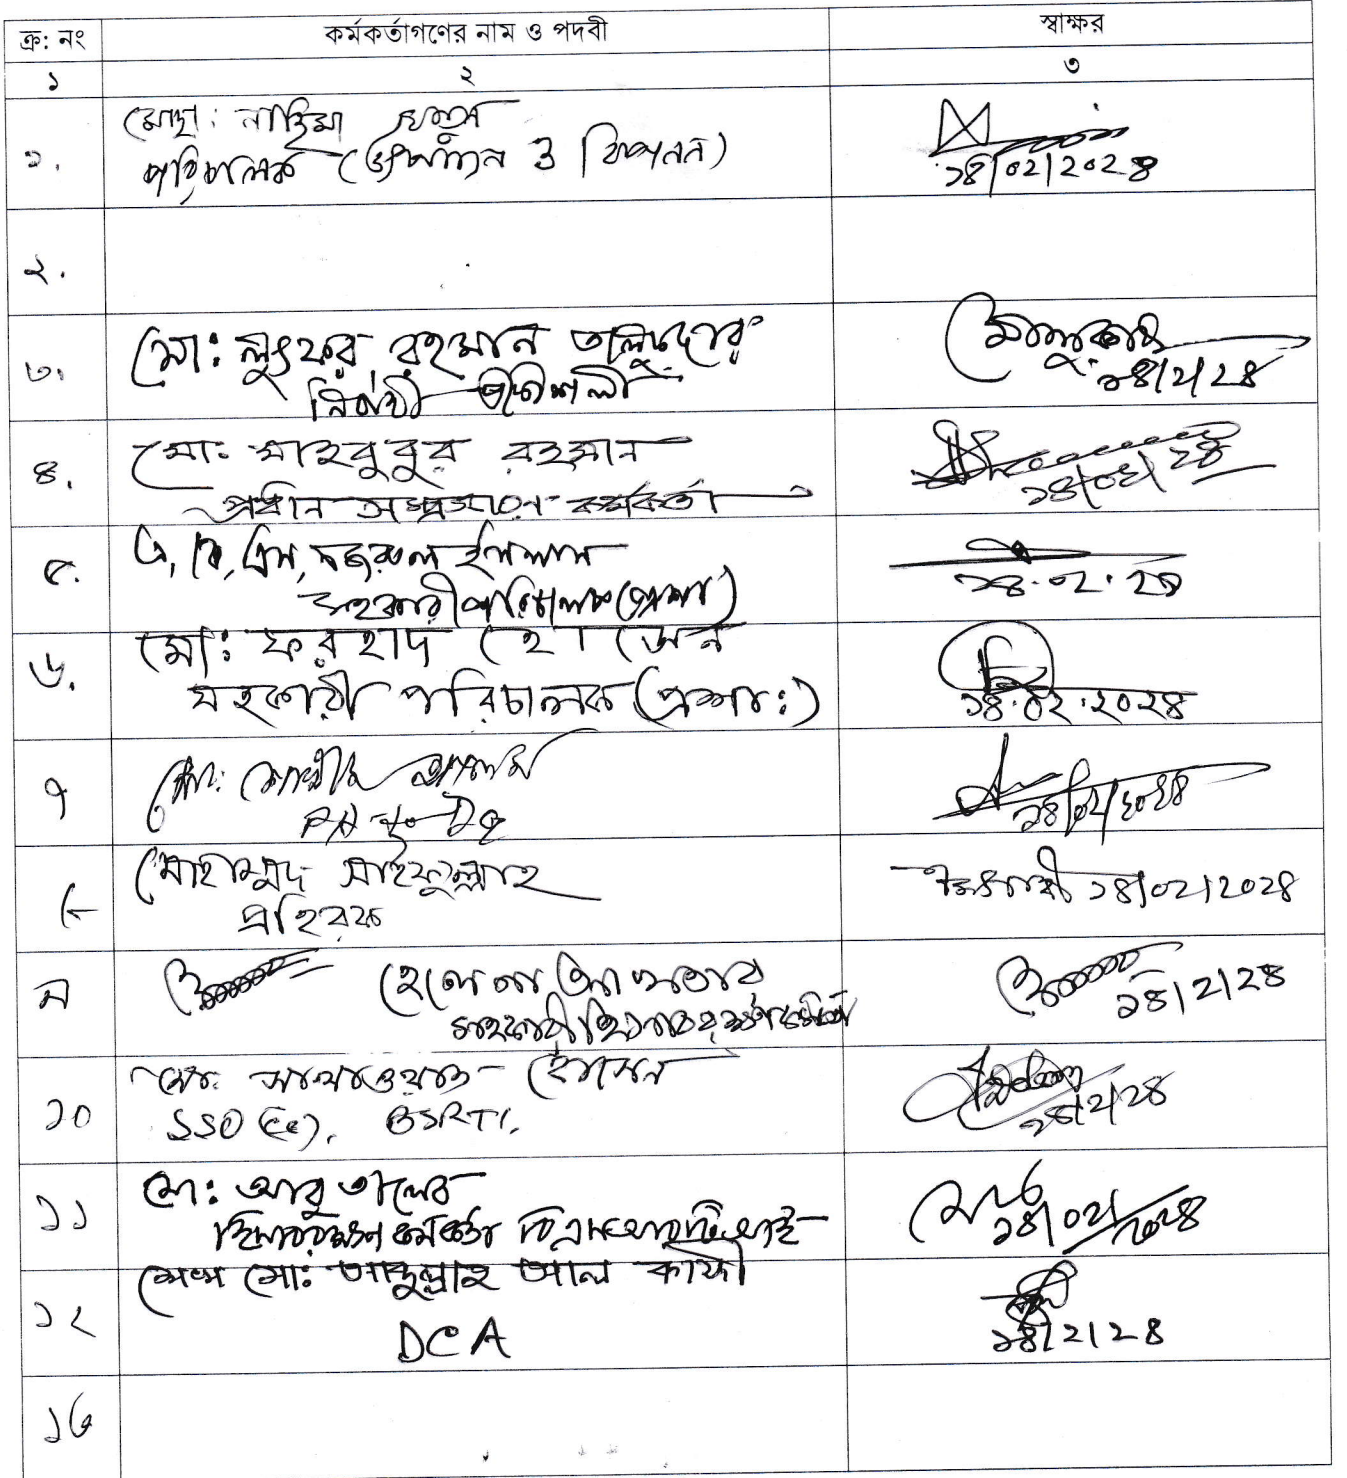 ক্র: নং কর্মকর্তাগণের নাম ও পদবী স্বাক্ষর
১ ২ ৩
১. মোছা: নাছিমা
পরিচালক (উৎপাদন ও বিপনন) ১৪/০২/২০২৪
২.
৩. মো: লুৎফর রহমান তালুকদার
নির্বাহী প্রকৌশলী ১৪/২/২৪
৪. মো: মাহবুবুর রহমান
প্রধান সম্প্রসারণ কর্মকর্তা ১৪/০২/২৪
৫. এ, কে, এম, নজরুল ইসলাম
সহকারী পরিচালক (প্রশা) ১৪.০২.২৪
৬. মো: ফরহাদ হোসেন
সহকারী পরিচালক (প্রশা:) ১৪.০২.২০২৪
৭ মো: আলম
PA to DG ১৪/০২/২০২৪
৮ মোহাম্মদ সাইফুল্লাহ
১৪/০২/২০২৪
৯ হেলেনা আকতার
সহকারী হিসাবরক্ষণ কর্মকর্তা ১৪/২/২৪
১০ মো: সাখাওয়াত হোসেন
SSO (cc), BSRTI. ১৪/২/২৪
১১ মো: আবু তালেব
হিসাবরক্ষণ কর্মকর্তা বিএসআরটিআই ১৪/০২/২০২৪
শেখ মো: আব্দুল্লাহ আল কাফী
১২ DCA ১৪/২/২৪
১৩